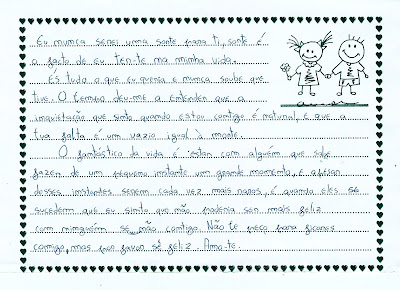 Eu nunca serei uma sorte para ti, sorte é
o facto de eu ter-te na minha vida.
És tudo o que eu queria e nunca soube que
tive. O tempo deu-me a entender que a
inquietação que sinto quando estou contigo é natural, e que a
tua falta é um vazio igual à morte.
O fantástico da vida é estar com alguém que sabe
fazer de um pequeno instante um grande momento, e apesar
desses instantes serem cada vez mais raros, é quando eles se
sucedem que eu sinto que não poderia ser mais feliz
com ninguém se não contigo. Não te peço para ficares
comigo, mas por favor sê feliz. Amo-te.